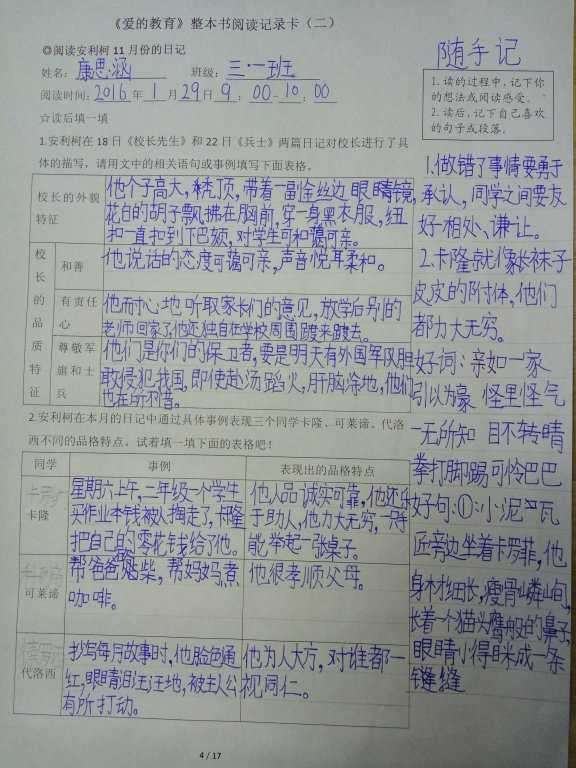 《爱的教育》整本书阅读记录卡（二）
◎阅读安利柯 11 月份的日记
姓名：康思涵 班级：三·一班
阅读时间：2016年1月29日9：00-10：00
☆读后填一填
1.安利柯在 18 日《校长先生》和 22 日《兵士》两篇日记对校长进行了具
体的描写，请用文中的相关语句或事例填写下面表格。
校长的外貌
特征
他个子高大，秃顶，带着一副金丝边眼睛镜，
花白的胡子飘拂在胸前，穿一身黑衣服，纽
扣一直扣到下巴颏，对学生可和蔼可亲。
校长的品质特征
和善
他说话的态度可蔼可亲，声音悦耳柔和。
有责任
心
他耐心地听取家长们的意见，放学后别的
老师回家了，他还独自在学校周围踱来踱去。
尊敬军
旗和士
兵
他们是你们的保卫者，要是明天有外国军队胆
敢侵犯我国，即使赴汤蹈火，肝脑涂地，他们
也在所不惜。
2.安利柯在本月的日记中通过具体事例表现三个同学卡隆、可莱谛、代洛
西不同的品格特点。试着填一填下面的表格吧！
同学 事例 表现出的品格特点
卡隆
星期六上午，二年级一个学生
买作业本钱被人掏走了，卡隆
把自己的零花钱给了他。
他人品诚实可靠，他还乐
于助人，他力大无穷，一只手
能举起一张桌子。
可莱谛
帮爸爸搬柴，帮妈妈煮
咖啡。
他很孝顺父母。
代洛西
抄写每月故事时，他脸色通
红，眼睛泪汪汪地，被主人公
有所打动。
他为人大方，对谁都一
视同仁。
随手记
1. 读的过程中，记下你
的想法或阅读感受。
2. 读后，记下自己喜欢
的句子或段落。
1.做错了事情要勇于
承认，同学之间要友
好相处、谦让。
2.卡隆就像长袜子
皮皮的附体，他们
都力大无穷。
好词：亲如一家
引以为豪 怪里怪气
一无所知 目不转晴
拳打脚踢 可怜巴巴
好句：①：小泥瓦
匠旁边坐着卡罗菲，他
身材细长，瘦骨嶙峋，
长着一个猫头鹰般的鼻子，
眼睛小得眯成一条
缝
4 / 17